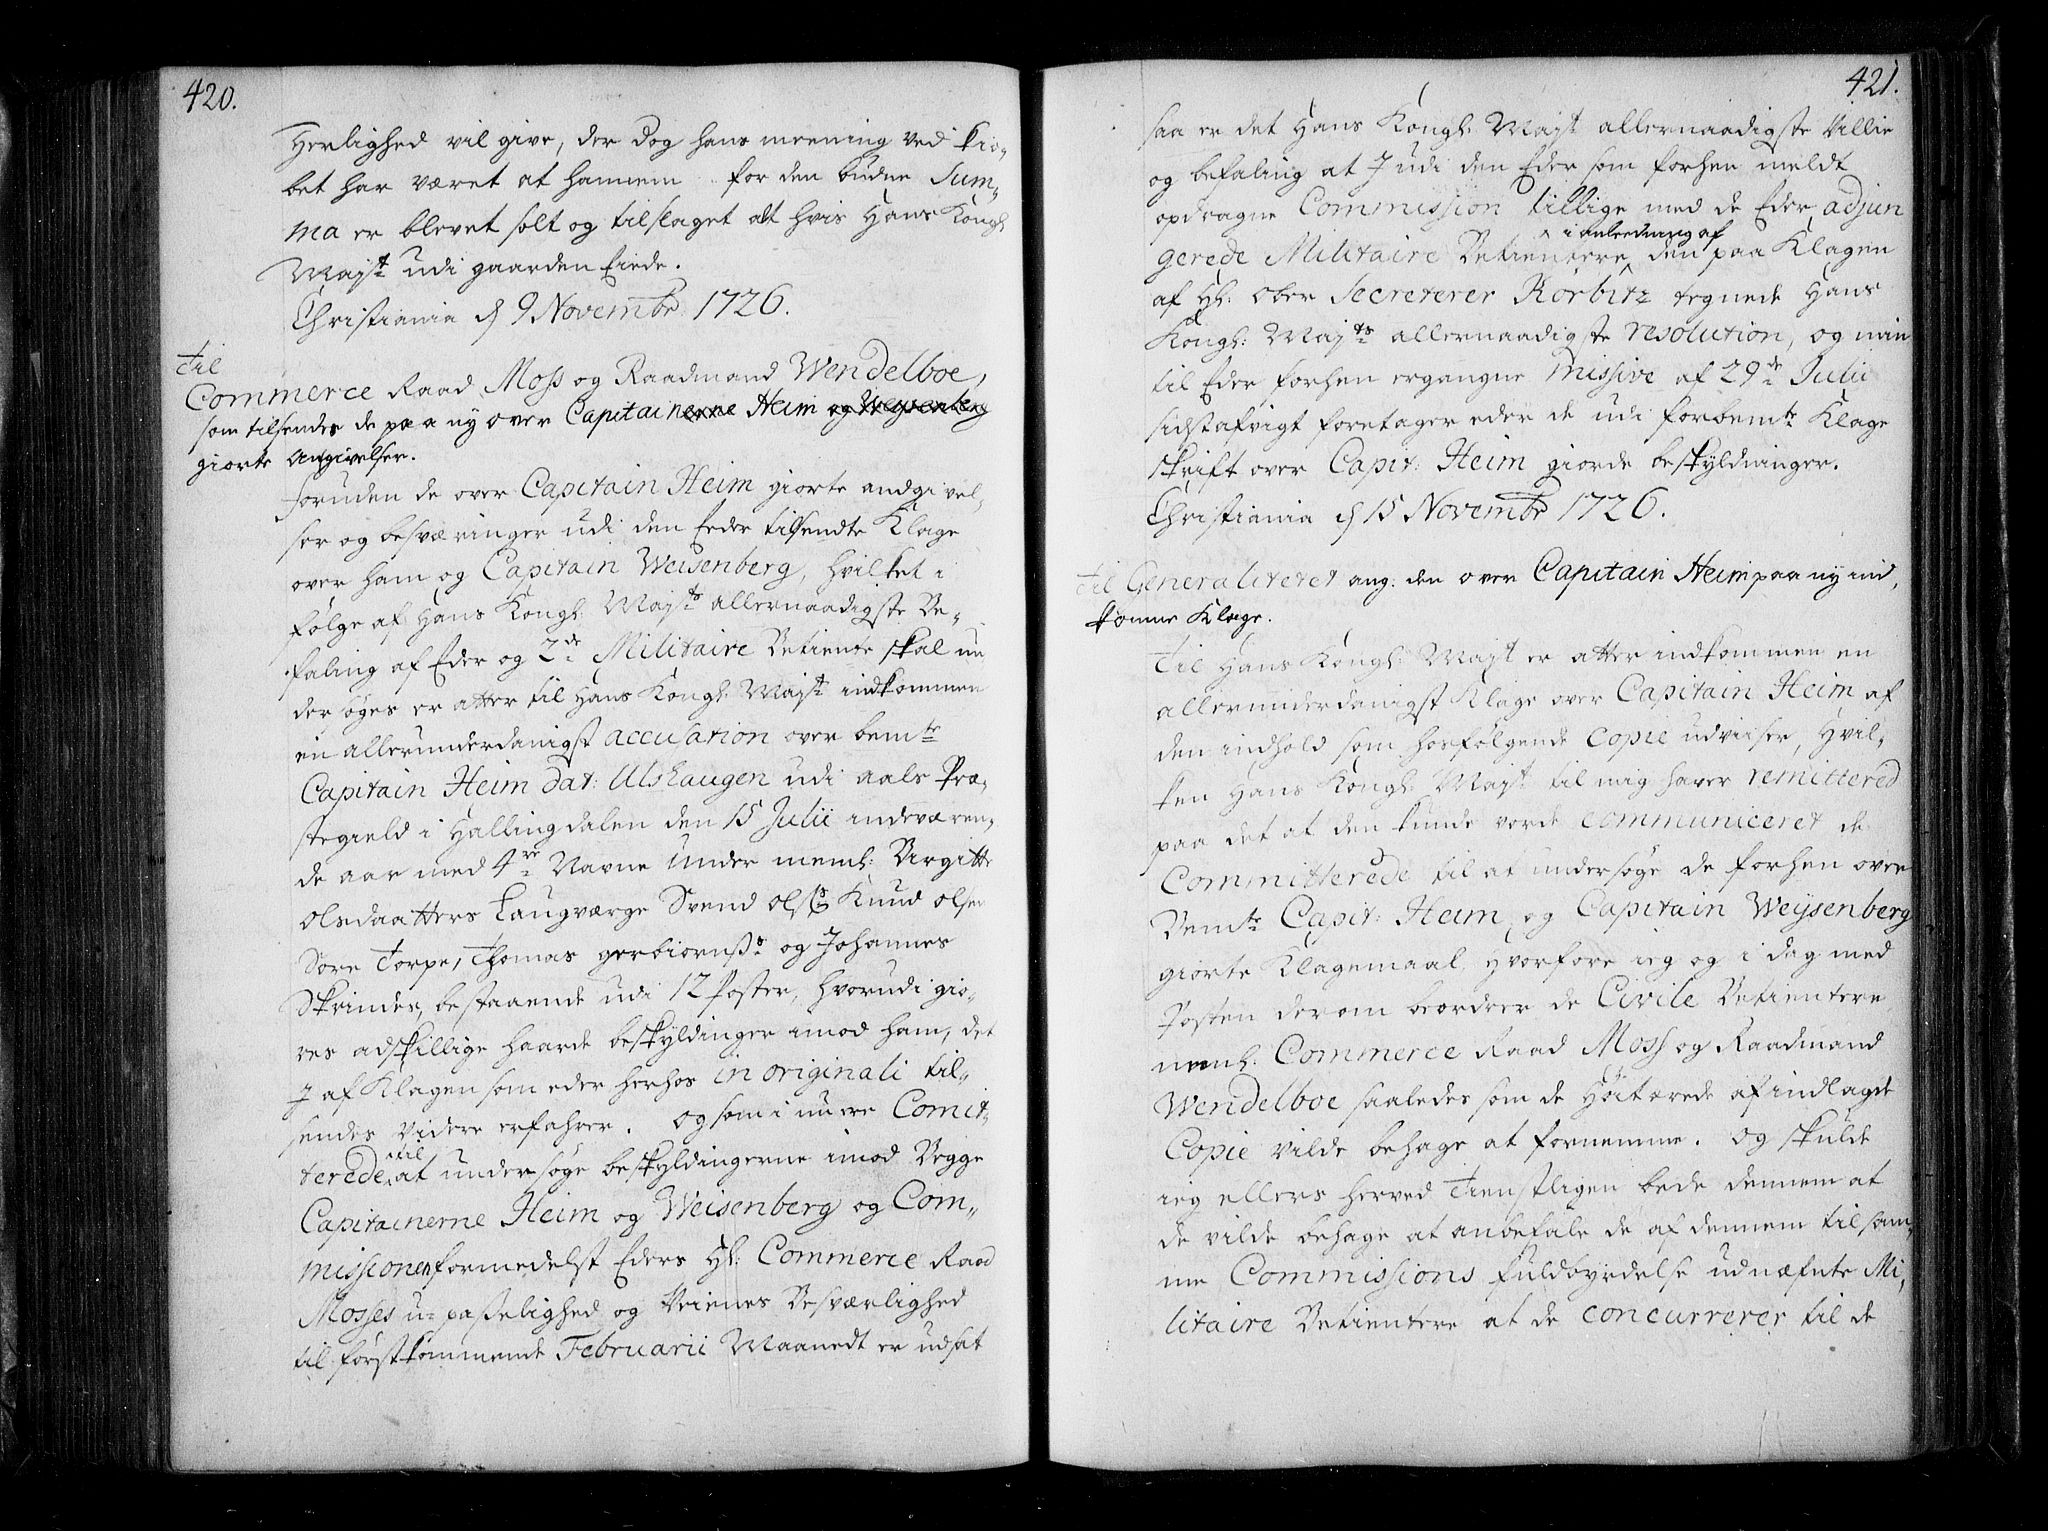 420.
Herlighed vil give, der dog hans meening ved kiø,,
bet har været at hannem for den budne Sum,,
ma er blevet solt og tilslaget alt hvis Hans Kongl
Mayst: udi gaarden Eiede.
Christiania d 9 Novembr: 1726.
Til
Commerce Raad Moss og Raadmand Wendelboe,
som tilsendes de paa ny over Capitainerne Heim og Weysenberg
giorte Angivelser.
foruden de over Capitain Heim giorte andgivel,,
ser og besværinger udi den Eeder tilsendte Klage
over ham og Capitain Weisenberg, hvilket i
følge af Hans Kongl: Mayts allernaadigste Be,,
faling af Eder og 2de Militaire Betiente skal un
der søges er atter til Hans Kongl: Mayst: indkommen
en allerunderdanigst accusation over bemte
Capitain Heim dat: Ulshaugen udi aals Præ,,
stegield i Hallingdalen den 15 Julii indeværen,,
de aar med 4re Navne under neml: Birgitte
Olsdaatters Laugværge Svend Olss: Knud Olsen
Sore Torpe, Thomas gerbiornss: og Johannes
Skrindes, bestaaende udi 12 Poster, hvorudi giø,,
res adskillige haarde beskyldinger imod ham, det
J af Klagen som eder herhos in originali til,,
sendes videre erfahrer. og som i nu ere Comit,,
terede til at undersøge beskyldingerne imod Begge
Capitainerne Heim og Weisenberg og Com,,
missionen formedelst Eders Hl: Commerce Raad
Mosses u-passelighed og Veienes Besværlighed
til førstkommende Februarii Maanedt er udsat
421.
saa er det Hans Kongl: Mayst allernaadigste Villie
og befaling at J udi den Eder som forhen meldt
opdragne Commission tillige med de Eder adjun
gerede Militaire Betientere i anleedning af den paa Klagen
af Hl: Ober Secreterer Körbitz tegnede Hans
Kongl: Mayts allernaadigste resolution, og min
til Eder forhen ergangne missive af 29de Julii
sidstafvigt foretager eder de udi forbemte Klage
skrift over Capit: Heim giorde beskyldninger.
Christiania d 15 Novembr 1726.
Til Generalitetet ang: den over Capitain Heim paa ny ind,
komne Klage.
Til Hans Kongl: Mayst er atter indkommen en
allerunderdanigst Klage over Capitain Heim af
den indhold som hosfølgende Copie udviiser, Hvil,,
ken Hans Kongl: Mayst til mig haver remittered
paa det at den kunde vorde communiceret de
Committerede til at undersøge de forhen over
Bemte Capit: Heim og Capitain Weysenberg
giorte Klagemaal, hvorfore ieg og i dag med
Posten derom beordrer de Civile Betientere
neml: Commerce Raad Moss og Raadmand
Wendelboe saaledes som de Høitærede af indlagde
Copie vilde behage at fornemme. og skulde
ieg ellers herved Tienstligen bede dennem at
de vilde behage at anbefale de af dennem til sam,,
me Commissions fuldbyrdelse udnæfnte Mi,,
litaire Betientere at de concurrerer til de